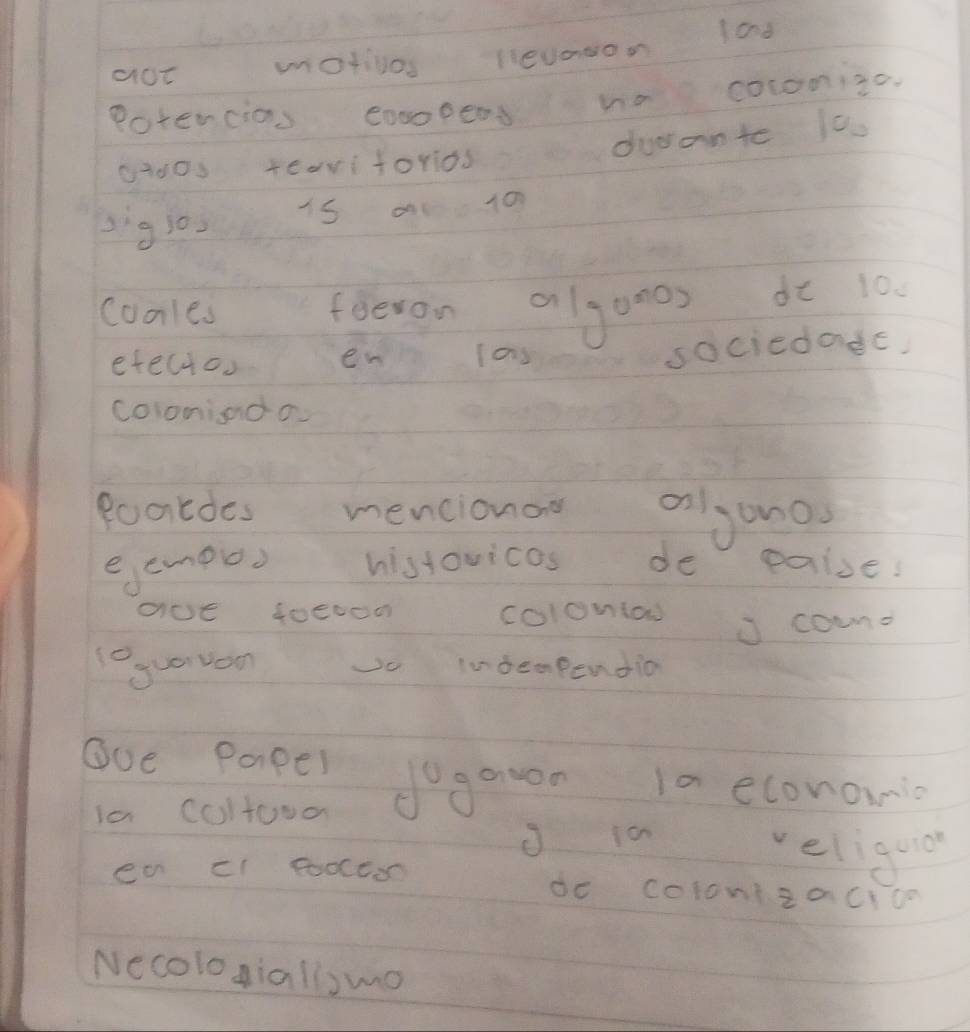 que motivos llevaron las
Potencias europeas ha coconiza.
otros territorios durante los
siglos 15 al 19
Cuales fueron algunos de los
efectos en las sociedade.
colonisada
Puatdes mencionar algunos
ejemplos historicos de paises
que fueron colonias y como
loguaron su indeapendia
Que Papel jugaron la economia
la cultura y la religuion
en el proceso de colonizacion
Necolonialismo